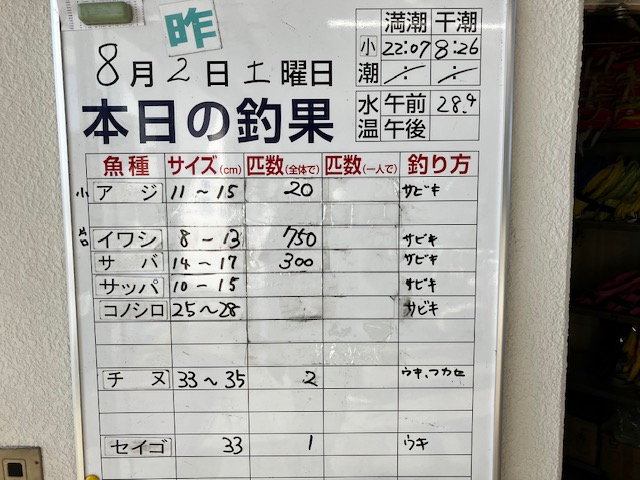 昨
8月2日土曜日
本日の釣果
満潮 干潮
小潮 22:07 8:26
水温 午前 28.4
午後
魚種 サイズ(cm) 匹数(全体で) 匹数(一人で) 釣り方
小 アジ 11～15 20 サビキ
片口 イワシ 8-13 750 サビキ
サバ 14-17 300 サビキ
サッパ 10-15 サビキ
コノシロ 25～28 サビキ
チヌ 33～35 2 ウキ、フカセ
セイゴ 33 1 ウキ